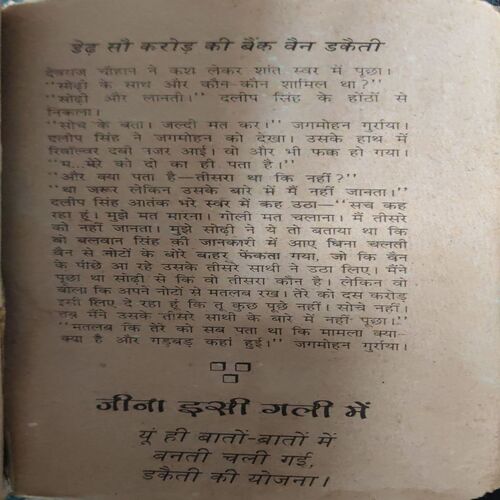 डेढ़ सौ करोड़ की बैंक वैन डकैती
देवराज चौहान ने कश लेकर शांत स्वर में पूछा।
“सोढ़ी के साथ और कौन-कौन शामिल था?”
“सोढ़ी और लानती।” दलीप सिंह के होंठों से
निकला।
“सोच के बता। जल्दी मत कर।” जगमोहन गुर्राया।
दलीप सिंह ने जगमोहन को देखा। उसके हाथ में
रिवॉल्वर दबी नजर आई। वो और भी फक्क हो गया।
“म...मेरे को दो का ही पता है।”
“और क्या पता है—तीसरा था कि नहीं?”
“था जरूर लेकिन उसके बारे में मैं नहीं जानता।”
दलीप सिंह आतंक भरे स्वर में कह उठा—“सच कह
रहा हूं। मुझे मत मारना। गोली मत चलाना। मैं तीसरे
को नहीं जानता। मुझे सोढ़ी ने ये तो बताया था कि
वो बलवान सिंह की जानकारी में आए बिना चलती
वैन से नोटों के बोरे बाहर फेंकता गया, जो कि वैन
के पीछे आ रहे उसके तीसरे साथी ने उठा लिए। मैंने
पूछा था सोढ़ी से कि वो तीसरा कौन है। लेकिन वो
बोला कि अपने नोटों से मतलब रख। तेरे को दस करोड़
इसी लिए दे रहा हूं कि तू कुछ पूछे नहीं। सोचे नहीं।
तब मैंने उसके तीसरे साथी के बारे में नहीं पूछा।”
“मतलब कि तेरे को सब पता था कि मामला क्या-
क्या है और गड़बड़ कहां हुई।” जगमोहन गुर्राया।
जीना इसी गली में
यूं ही बातों-बातों में
बनती चली गई,
डकैती की योजना।